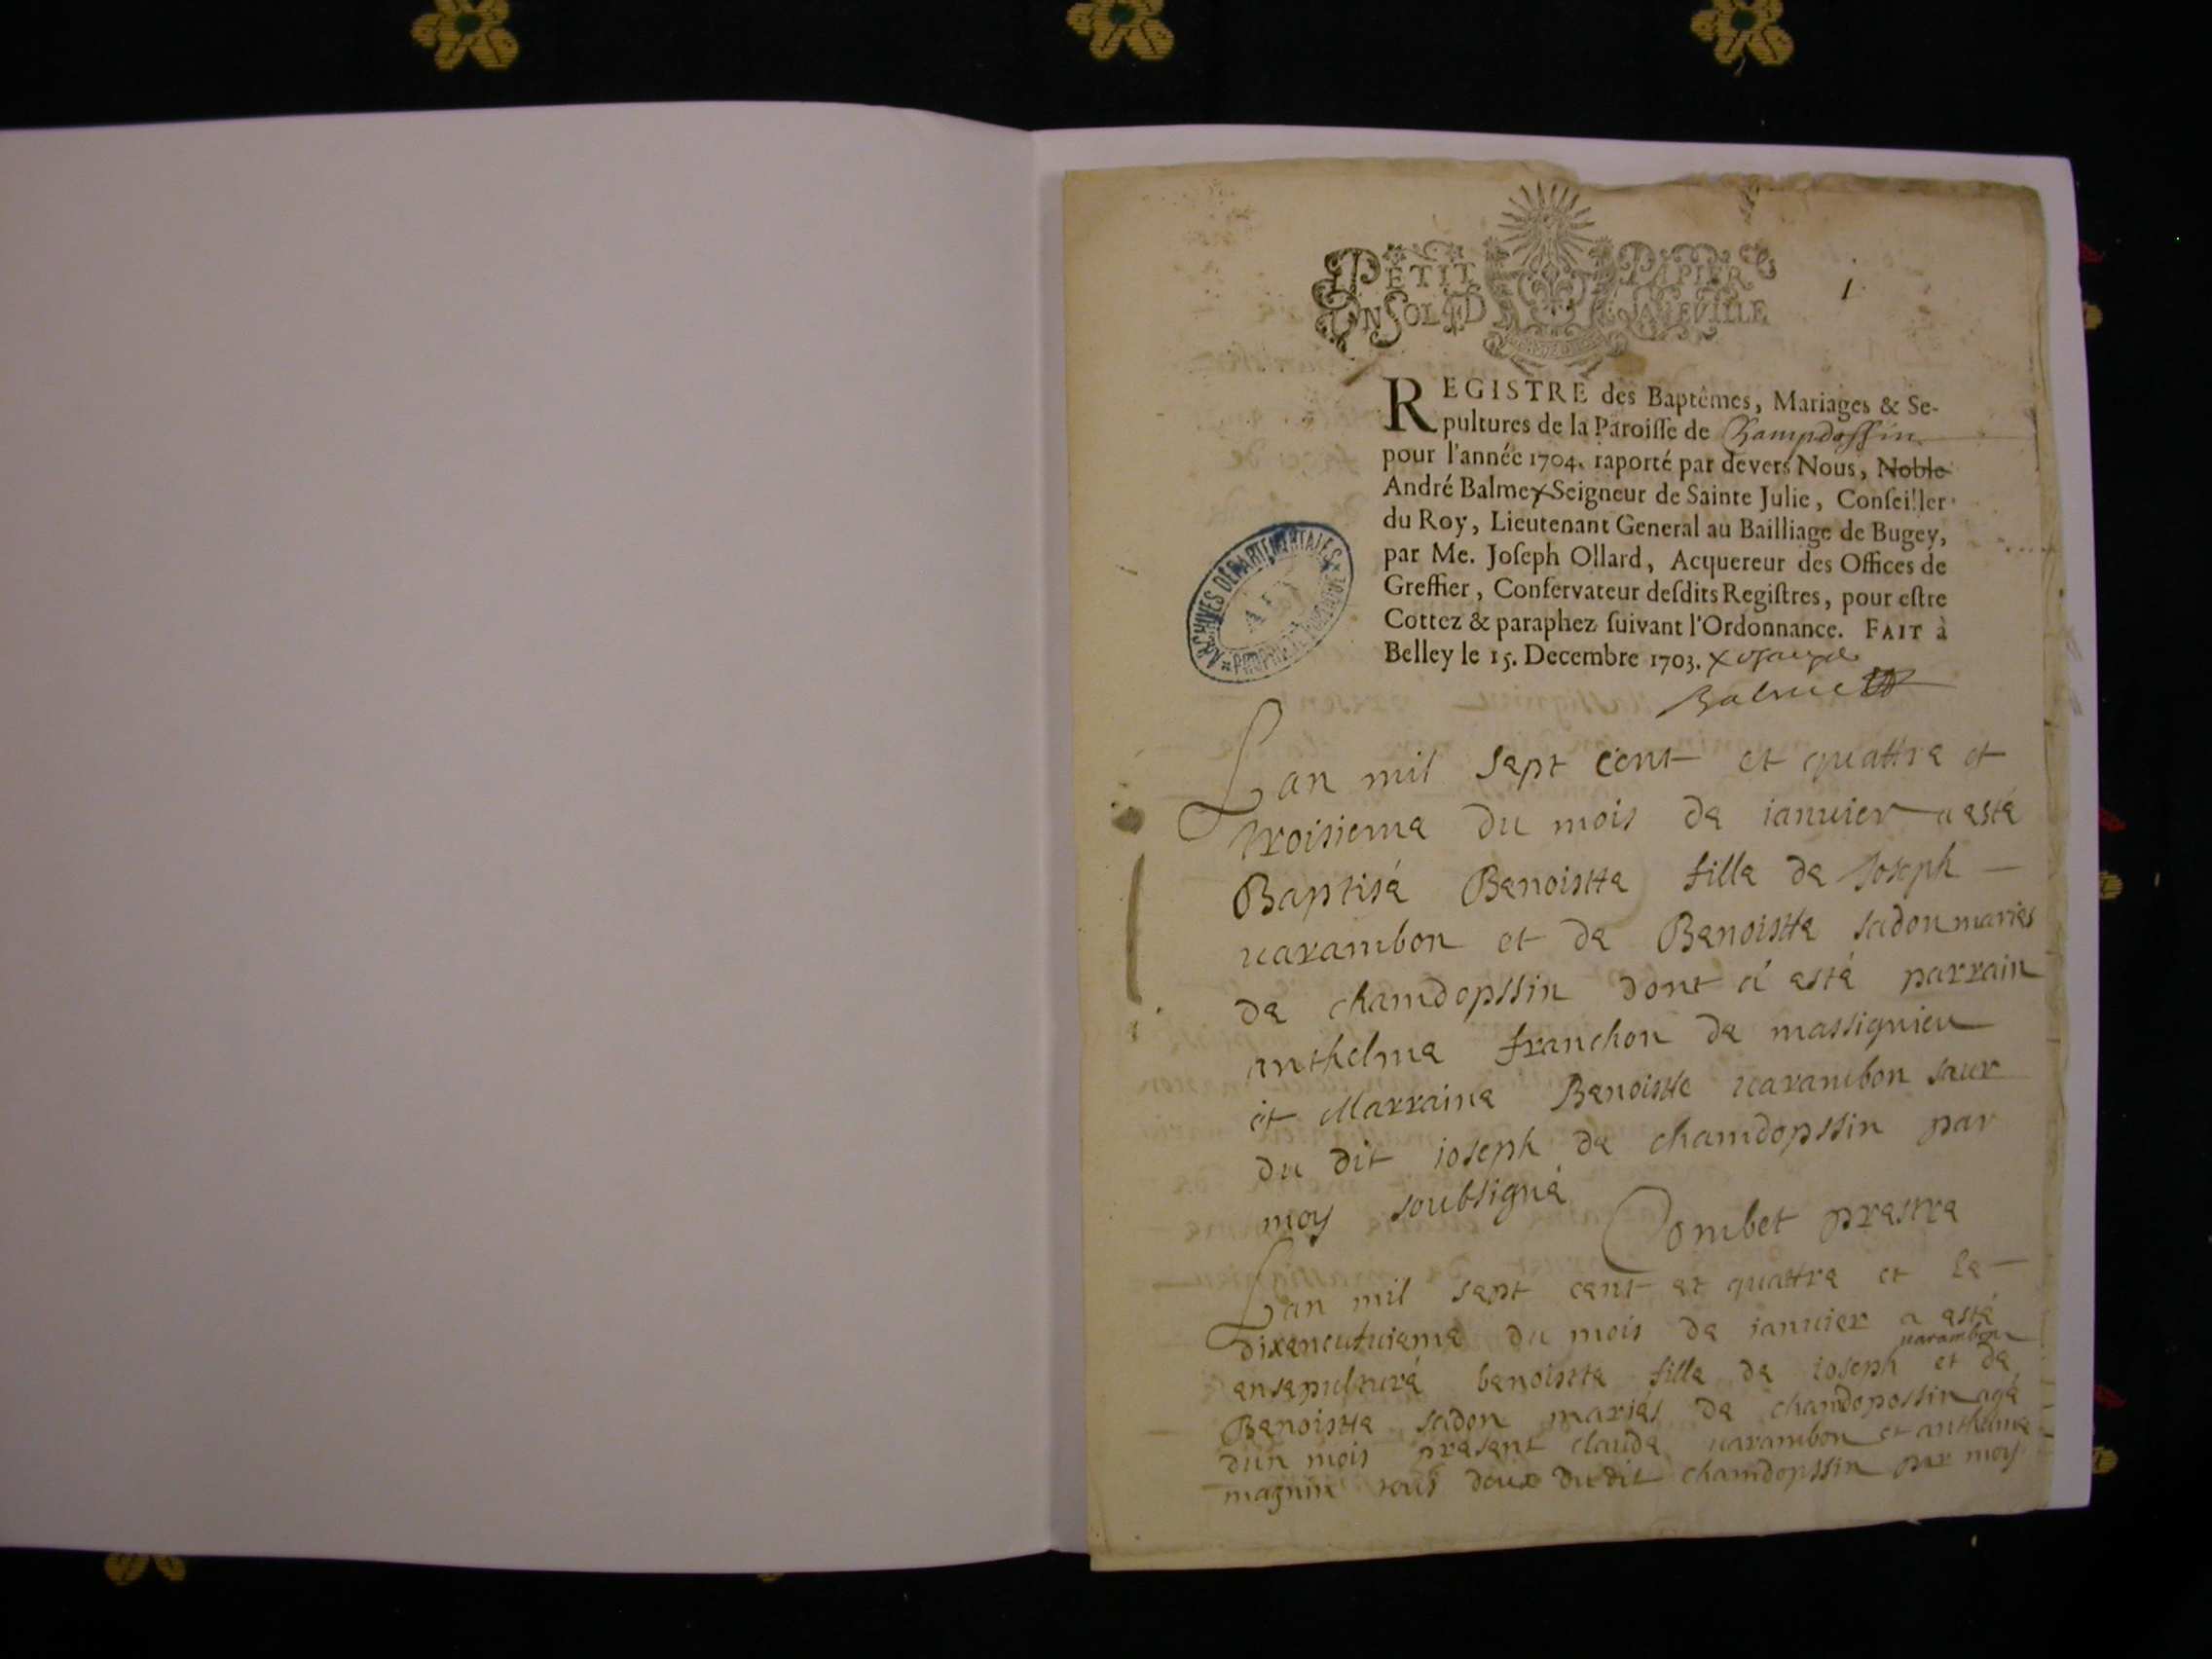 PETIT PAPIER
UN SOL 4D LA FEUILLE
1
REGISTRE des Baptêmes, Mariages & Se-
pultures de la Paroisse de Champdossin
pour l'année 1704. raporté par devers Nous, Noble
André Balme x Seigneur de Sainte Julie, Conseiller
du Roy, Lieutenant General au Bailliage de Bugey,
par Me. Joseph Ollard, Acquereur des Offices de
Greffier, Conservateur desdits Registres, pour estre
Cottez & paraphez suivant l'Ordonnance. FAIT à
Belley le 15. Decembre 1703. x
Balme
ARCHIVES DÉPARTEMENTALES
AIN
Lan mil sept cent et quattre et
troisieme du mois de ianvier a esté
Baptisé Benoistte fille de Joseph
uarambon et de Benoistte sadon maries
de chamdopssin dont á esté parrain
anthelme franchon de massignieu
et Marraine Benoistte uarambon saur
du dit ioseph de chamdopssin par
moy soubsigné
Combet prestre
Lan mil sept cent et quattre et le
dixeneufuieme du mois de ianvier a esté
uarambon
ensepulturé benoistte fille de ioseph et de
Benoistte sadon mariés de chamdopossin agé
dun mois présent claude uarambon et anthelme
magnin tous deux du dit chamdopssin par moy